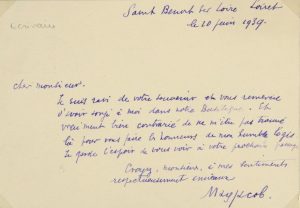 écrivain
Saint Benoit sur Loire Loiret
le 20 juin 1959.
cher monsieur.
Je suis ravi de votre souvenir et vous remercie
d'avoir songé à moi dans notre. Et
vraiment très contrarié de ne m'être pas trouvé
là pour vous faire les honneurs de mon humble logis
Je garde l'espoir de vous voir à votre prochain
Croyez, monsieur, à mes sentiments
respectueusement